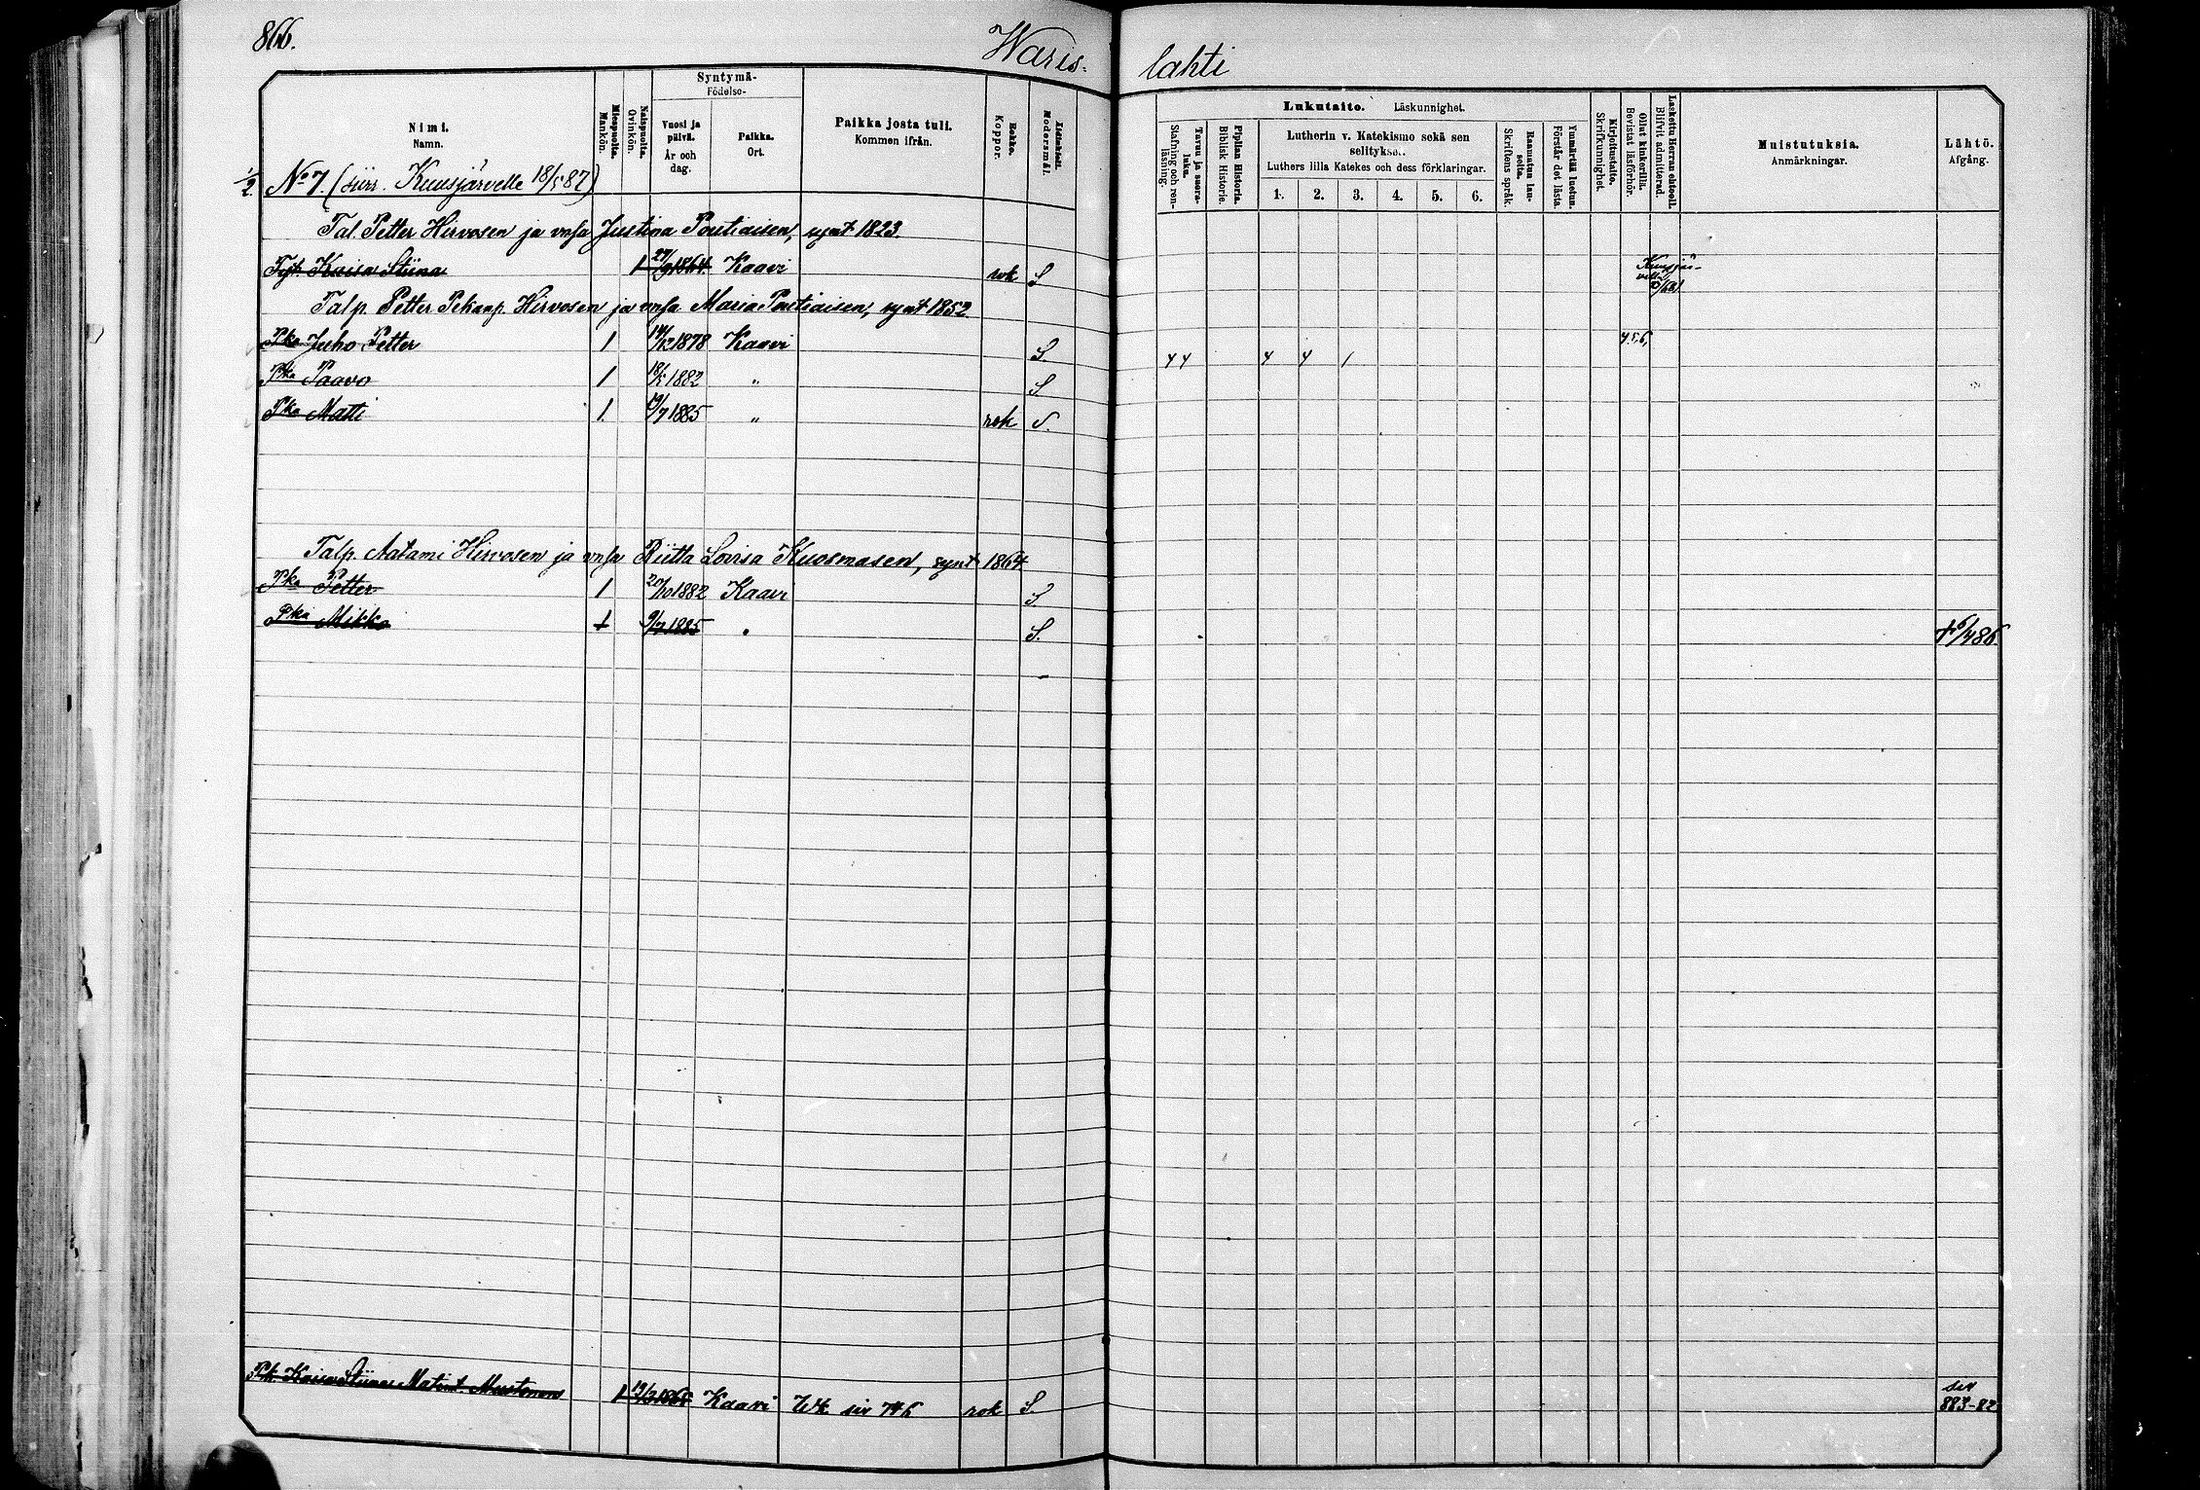 866.
Waris-
lahti
Nimi.
Namn.
Miespuolta.
Mankön.
Naispuolta.
Qvinkön.
Syntymä-
Födelse-
Vuosi ja päivä.
År och dag.
Paikka.
Ort.
Paikka josta tuli.
Kommen ifrån.
Rokko.
Koppor.
Äidinkieli.
Modersmål.
Lukutaito. Läskunnighet.
Tavuu ja suora-luku.
Stafning och ren-läsning.
Piplian Historia.
Biblisk Historie.
Lutherin v. Katekismo sekä sen selitykse..
Luthers lilla Katekes och dess förklaringar.
1. 2. 3. 4. 5. 6.
Raamatun lau-seita.
Skriftens språk.
Ymmärtää luetun.
Förstår det lästa.
Kirjoitustaito.
Skrifkunnighet.
Ollut kinkerillä.
Bevistat läsförhör.
Laskettu Herran ehtool.
Blifvit admitterad.
Muistutuksia.
Anmärkningar.
Lähtö.
Afgång.
1/2 No 7. (siirr. Kuusjärvelle 18/5 87)
Tal. Petter Hirvosen ja vaSa Justina Pontiaisen, synt 1823.
Tyt. Kaisa Stiina 1 27/9 1864 Kaavi rok S
Talp. Petter Pekanp. Hirvosen ja vaSa Maria Pontiaisen, synt 1852
Pka Juho Petter 1 14/12 1878 Kaavi S. 4 4 4 4 1 4.5.6,
Pka Paavo 1 18/5 1882 " S
Pka Matti 1. 19/7 1885 " rok S.
Talp. Aatami Hirvosen ja vaSa Riitta Lovisa Kuosmasen, synt 1864
Pka Petter 1 20/10 1882 Kaavi S.
Pka Mikko 1 9/7 1885 " S. + 6/4 86.
Pk. Kaisa Stiina Matint. Mustonen 1 Kaavi rok S.
883-87